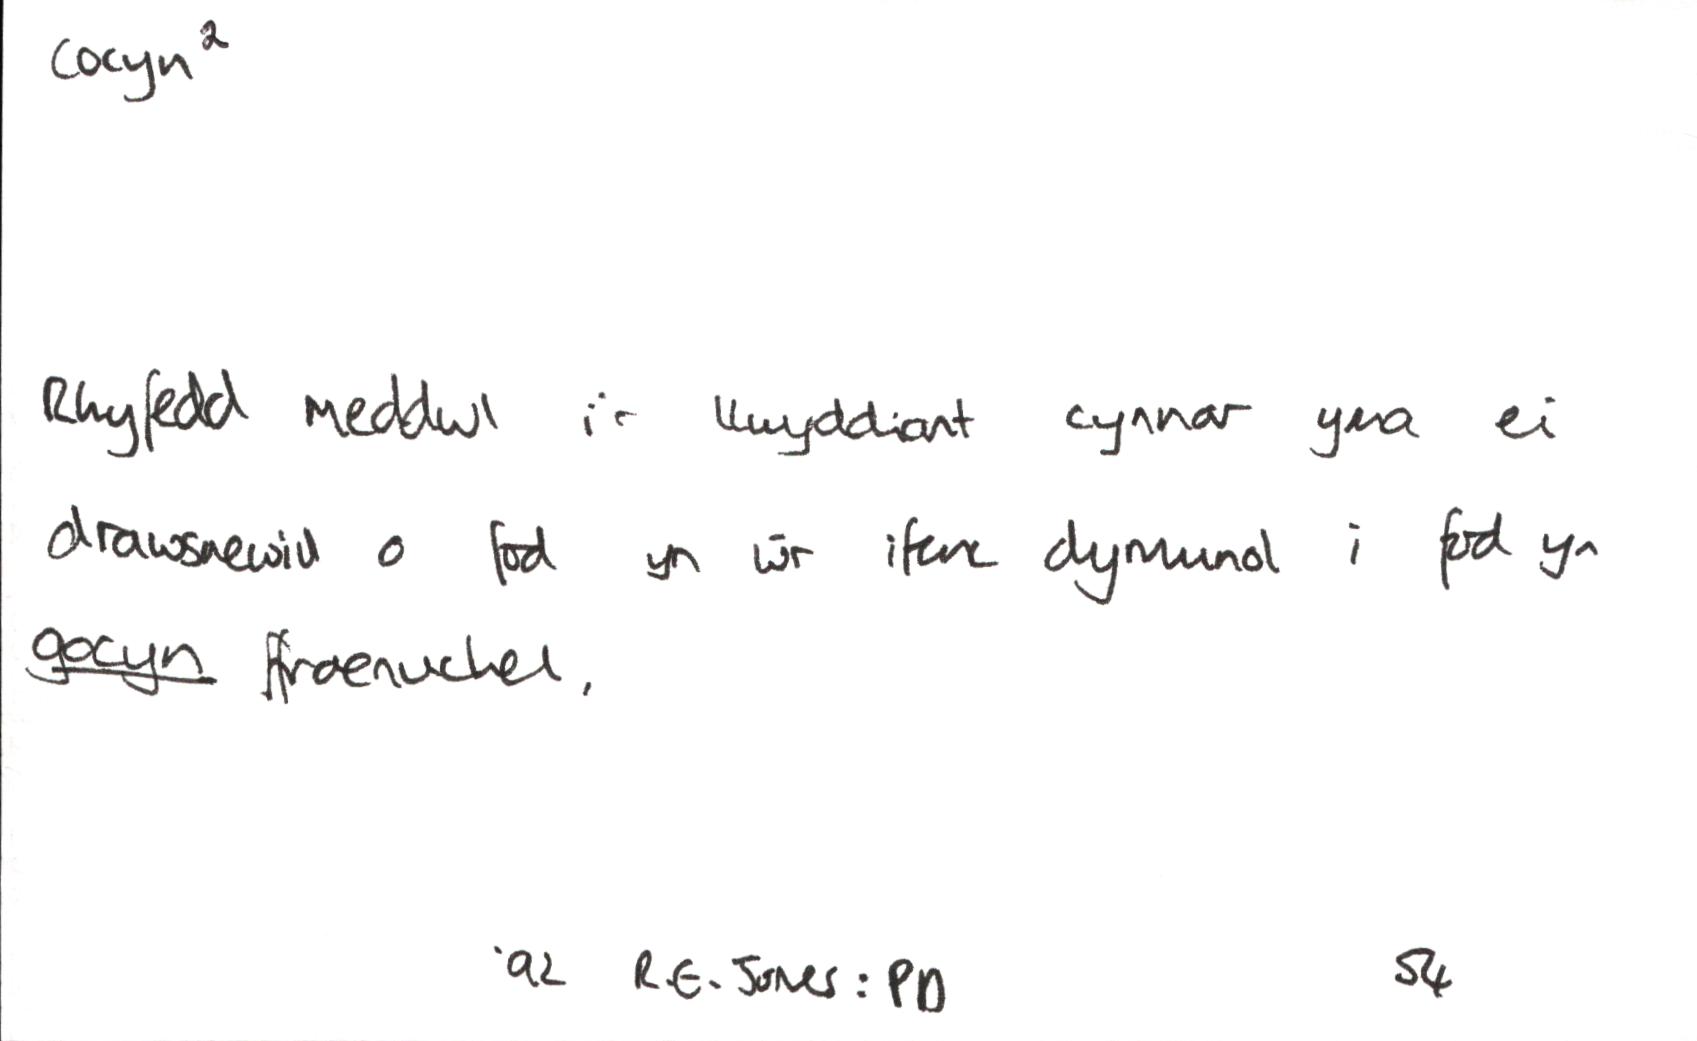 Cocyn²
Rhyfedd meddwl i'r llwyddiant cynnar yma ei
drawsnewid o fod yn ŵr ifanc dymunol i fod yn
gocyn ffroenuchel,
'92 R.E. Jones: PD 54